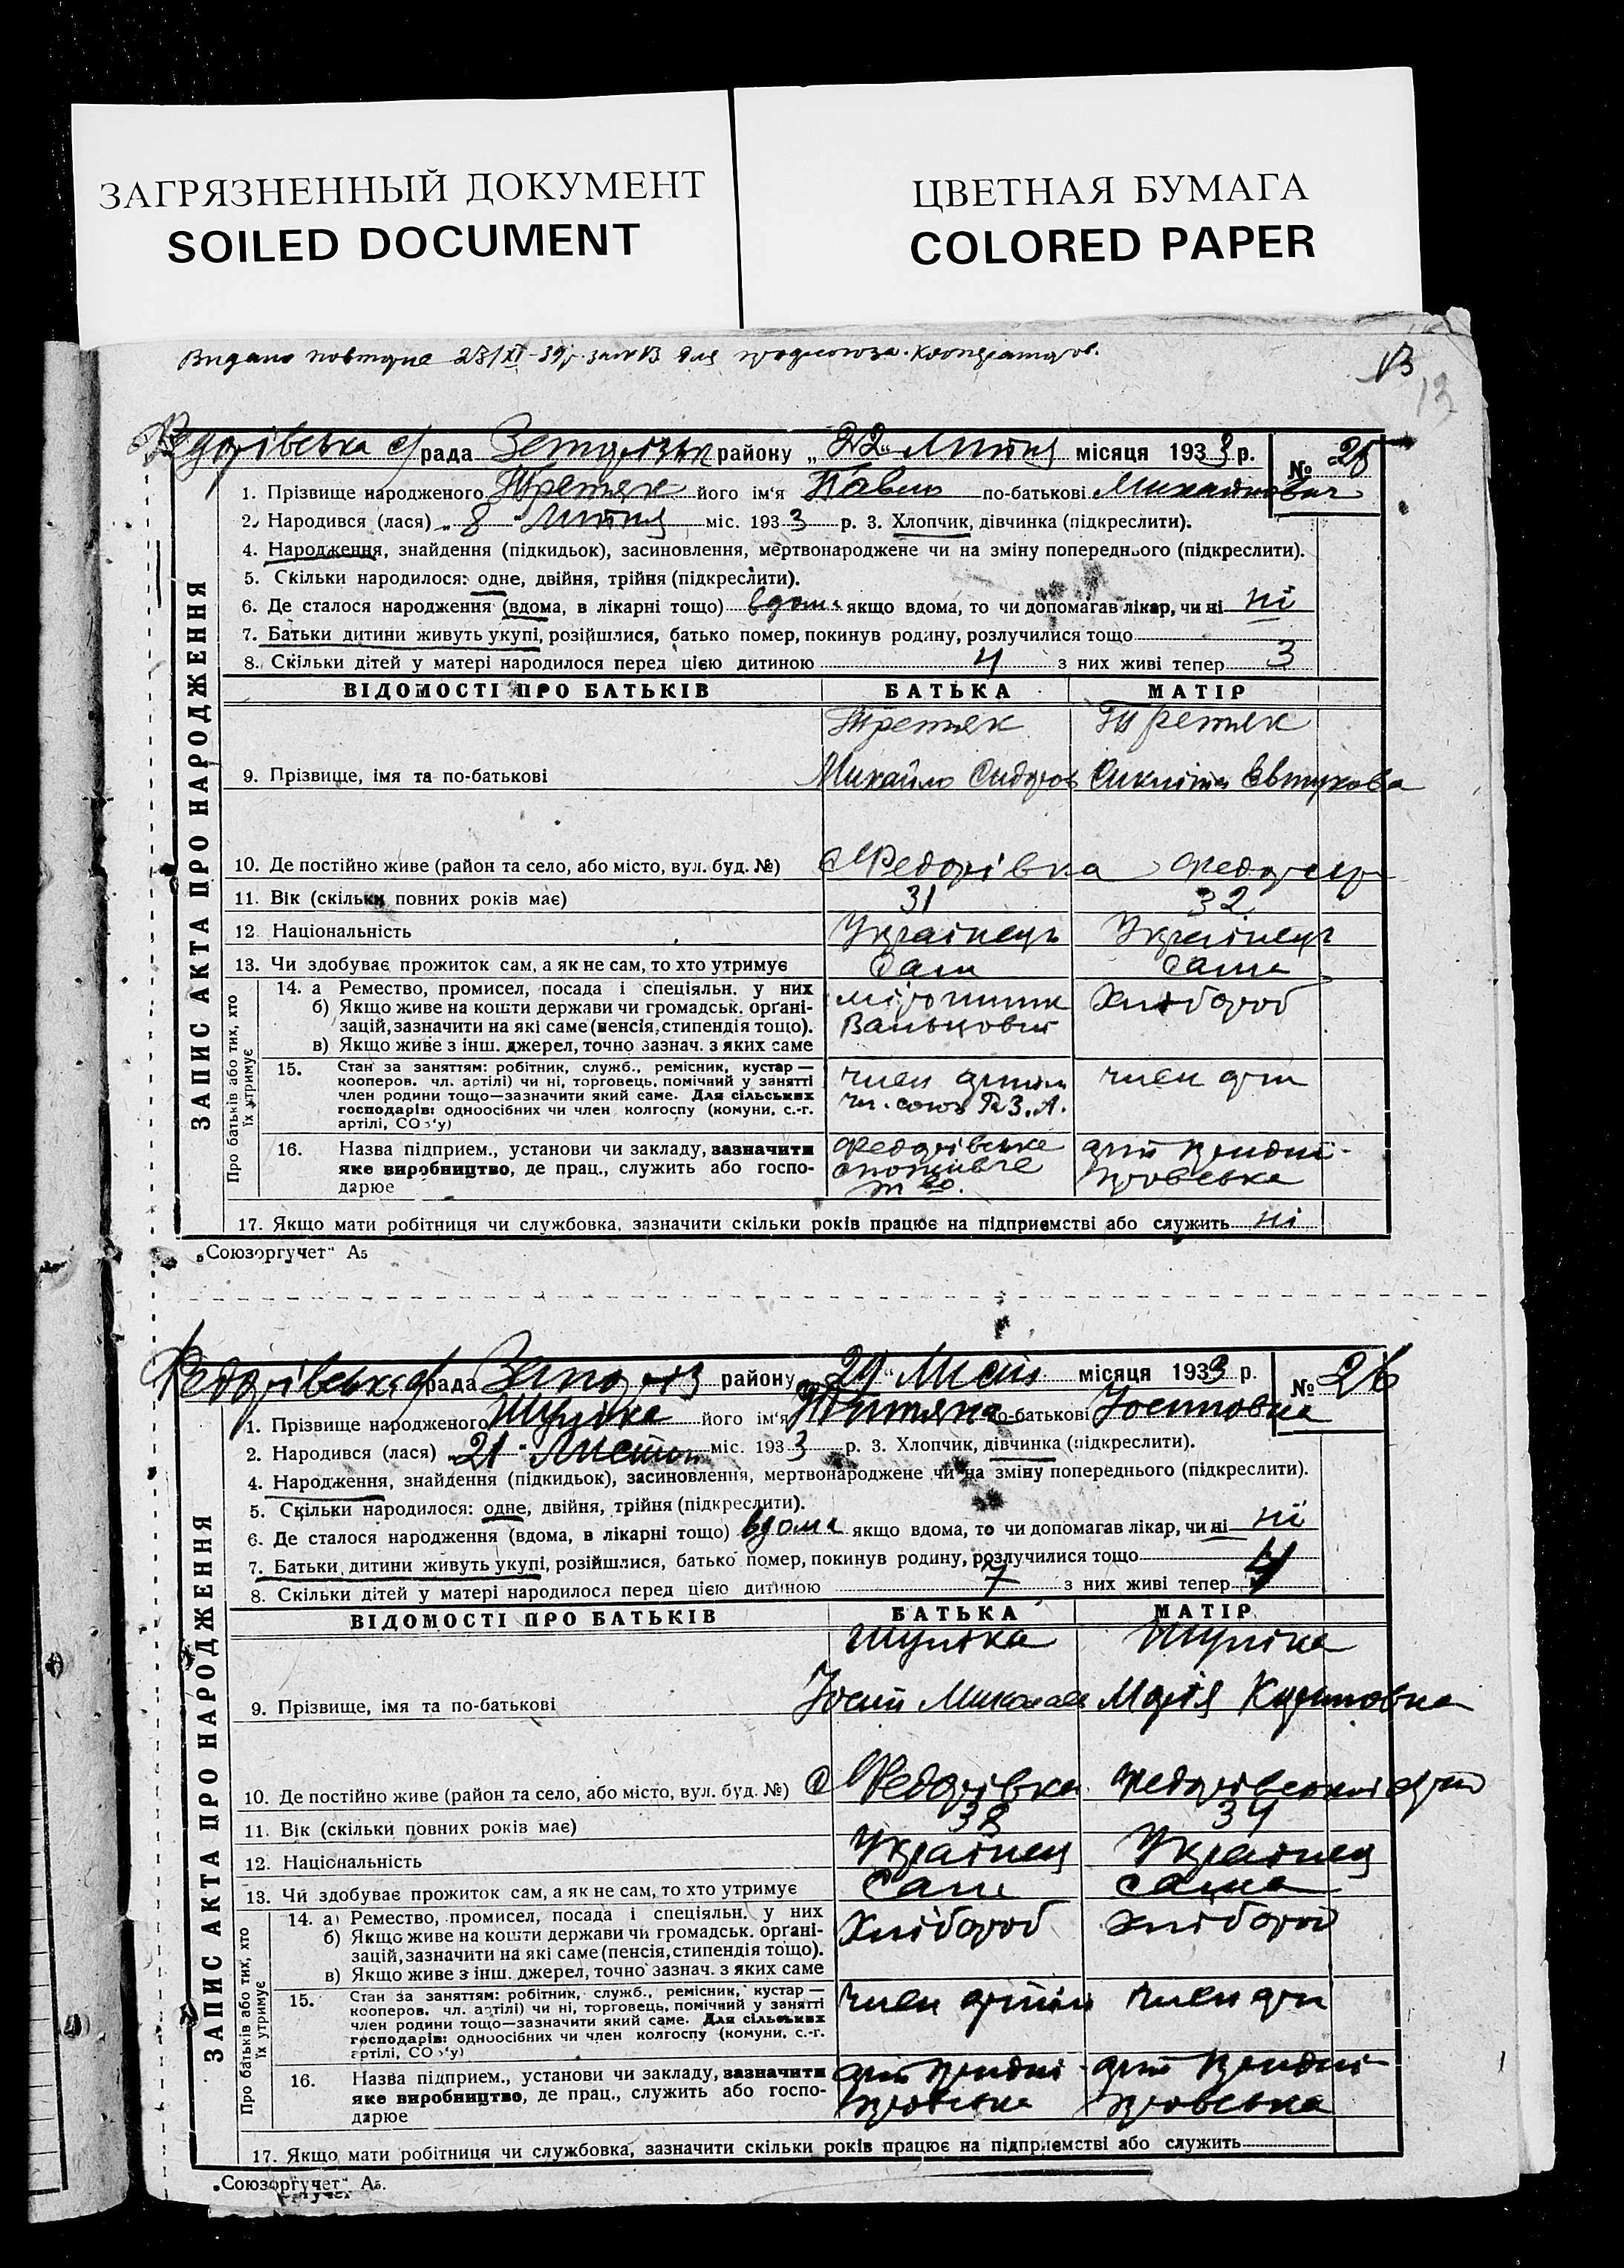 ЗАГРЯЗНЕННЫЙ ДОКУМЕНТ
SOILED DOCUMENT
ЦВЕТНАЯ БУМАГА
COLORED PAPER
Видано повторне 28/XI-39р.
13
13
Федорівська с/рада району „22" Липня місяця 1933 р. № 25
1. Прізвище народженого Третяк його ім'я Павло по-батькові Михайлович
2. Народився (лася) „8" Липня міс. 1933 р. 3. Хлопчик, дівчинка (підкреслити).
4. Народження, знайдення (підкидьок), засиновлення, мертвонароджене чи на зміну попереднього (підкреслити).
5. Скільки народилося: одне, двійня, трійня (підкреслити).
6. Де сталося народження (вдома, в лікарні тощо) вдома якщо вдома, то чи допомагав лікар, чи ні ні
7. Батьки дитини живуть укупі, розійшлися, батько помер, покинув родину, розлучилися тощо
8. Скільки дітей у матері народилося перед цією дитиною 4 з них живі тепер 3
ЗАПИС АКТА ПРО НАРОДЖЕННЯ
ВІДОМОСТІ ПРО БАТЬКІВ БАТЬКА МАТІР
Третяк Третяк
9. Прізвище, імя та по-батькові Михайло Сидоров
10. Де постійно живе (район та село, або місто, вул. буд. №) с Федорівка
11. Вік (скільки повних років має) 31 32
12. Національність Українець Українець
13. Чи здобуває прожиток сам, а як не сам, то хто утримує Сам Сама
Про батьків або тих, хто їх утримує
14. а Ремество, промисел, посада і спеціяльн. у них
б) Якщо живе на кошти держави чи громадськ. органі-
зацій, зазначити на які саме (пенсія, стипендія тощо).
в) Якщо живе з інш. джерел, точно зазнач. з яких саме
Хлібороб
15. Стан за заняттям: робітник, служб., ремісник, кустар —
кооперов. чл. артілі) чи ні, торговець, помічний у занятті
член родини тощо—зазначити який саме. Для сільських
господарів: одноосібних чи член колгоспу (комуни, с.-г.
артілі, СОз'у)
член артіли член арт
16. Назва підприєм., установи чи закладу, зазначити
яке виробництво, де прац., служить або госпо-
дарюе
Федорівське
споживче
т во.
17. Якщо мати робітниця чи службовка, зазначити скільки років працює на підприємстві або служить ні
„Союзоргучет" А5
Федорівська с/рада району „29" місяця 1933 р. № 26
1. Прізвище народженого Шуліка його ім'я Титяна по-батькові Йосиповна
2. Народився (лася) „21" міс. 1933 р. 3. Хлопчик, дівчинка (підкреслити).
4. Народження, знайдення (підкидьок), засиновлення, мертвонароджене чи на зміну попереднього (підкреслити).
5. Скільки народилося: одне, двійня, трійня (підкреслити).
6. Де сталося народження (вдома, в лікарні тощо) вдома якщо вдома, то чи допомагав лікар, чи ні ні
7. Батьки дитини живуть укупі, розійшлися, батько помер, покинув родину, розлучилися тощо
8. Скільки дітей у матері народилося перед цією дитиною 7 з них живі тепер 4
ЗАПИС АКТА ПРО НАРОДЖЕННЯ
ВІДОМОСТІ ПРО БАТЬКІВ БАТЬКА МАТІР
Шуліка Шуліка
9. Прізвище, імя та по-батькові Йосип Миколаев Марія
10. Де постійно живе (район та село, або місто, вул. буд. №) с Федорівка
11. Вік (скільки повних років має) 38 34
12. Національність Українец Українец
13. Чи здобуває прожиток сам, а як не сам, то хто утримує Сам Сама
Про батьків або тих, хто їх утримує
14. а) Ремество, промисел, посада і спеціяльн. у них
б) Якщо живе на кошти держави чи громадськ. органі-
зацій, зазначити на які саме (пенсія, стипендія тощо).
в) Якщо живе з інш. джерел, точно зазнач. з яких саме
Хлібороб Хлібороб
15. Стан за заняттям: робітник, служб., ремісник, кустар —
кооперов. чл. артілі) чи ні, торговець, помічний у занятті
член родини тощо—зазначити який саме. Для сільських
господарів: одноосібних чи член колгоспу (комуни, с.-г.
артілі, СОз'у)
член артіли член арт
16. Назва підприєм., установи чи закладу, зазначити
яке виробництво, де прац., служить або госпо-
дарюе
17. Якщо мати робітниця чи службовка, зазначити скільки років працює на підприємстві або служить
„Союзоргучет" А5.